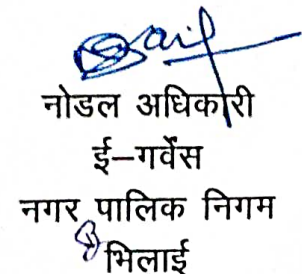 नोडल अधिकारी
ई–गर्वेस
नगर पालिक निगम
भिलाई